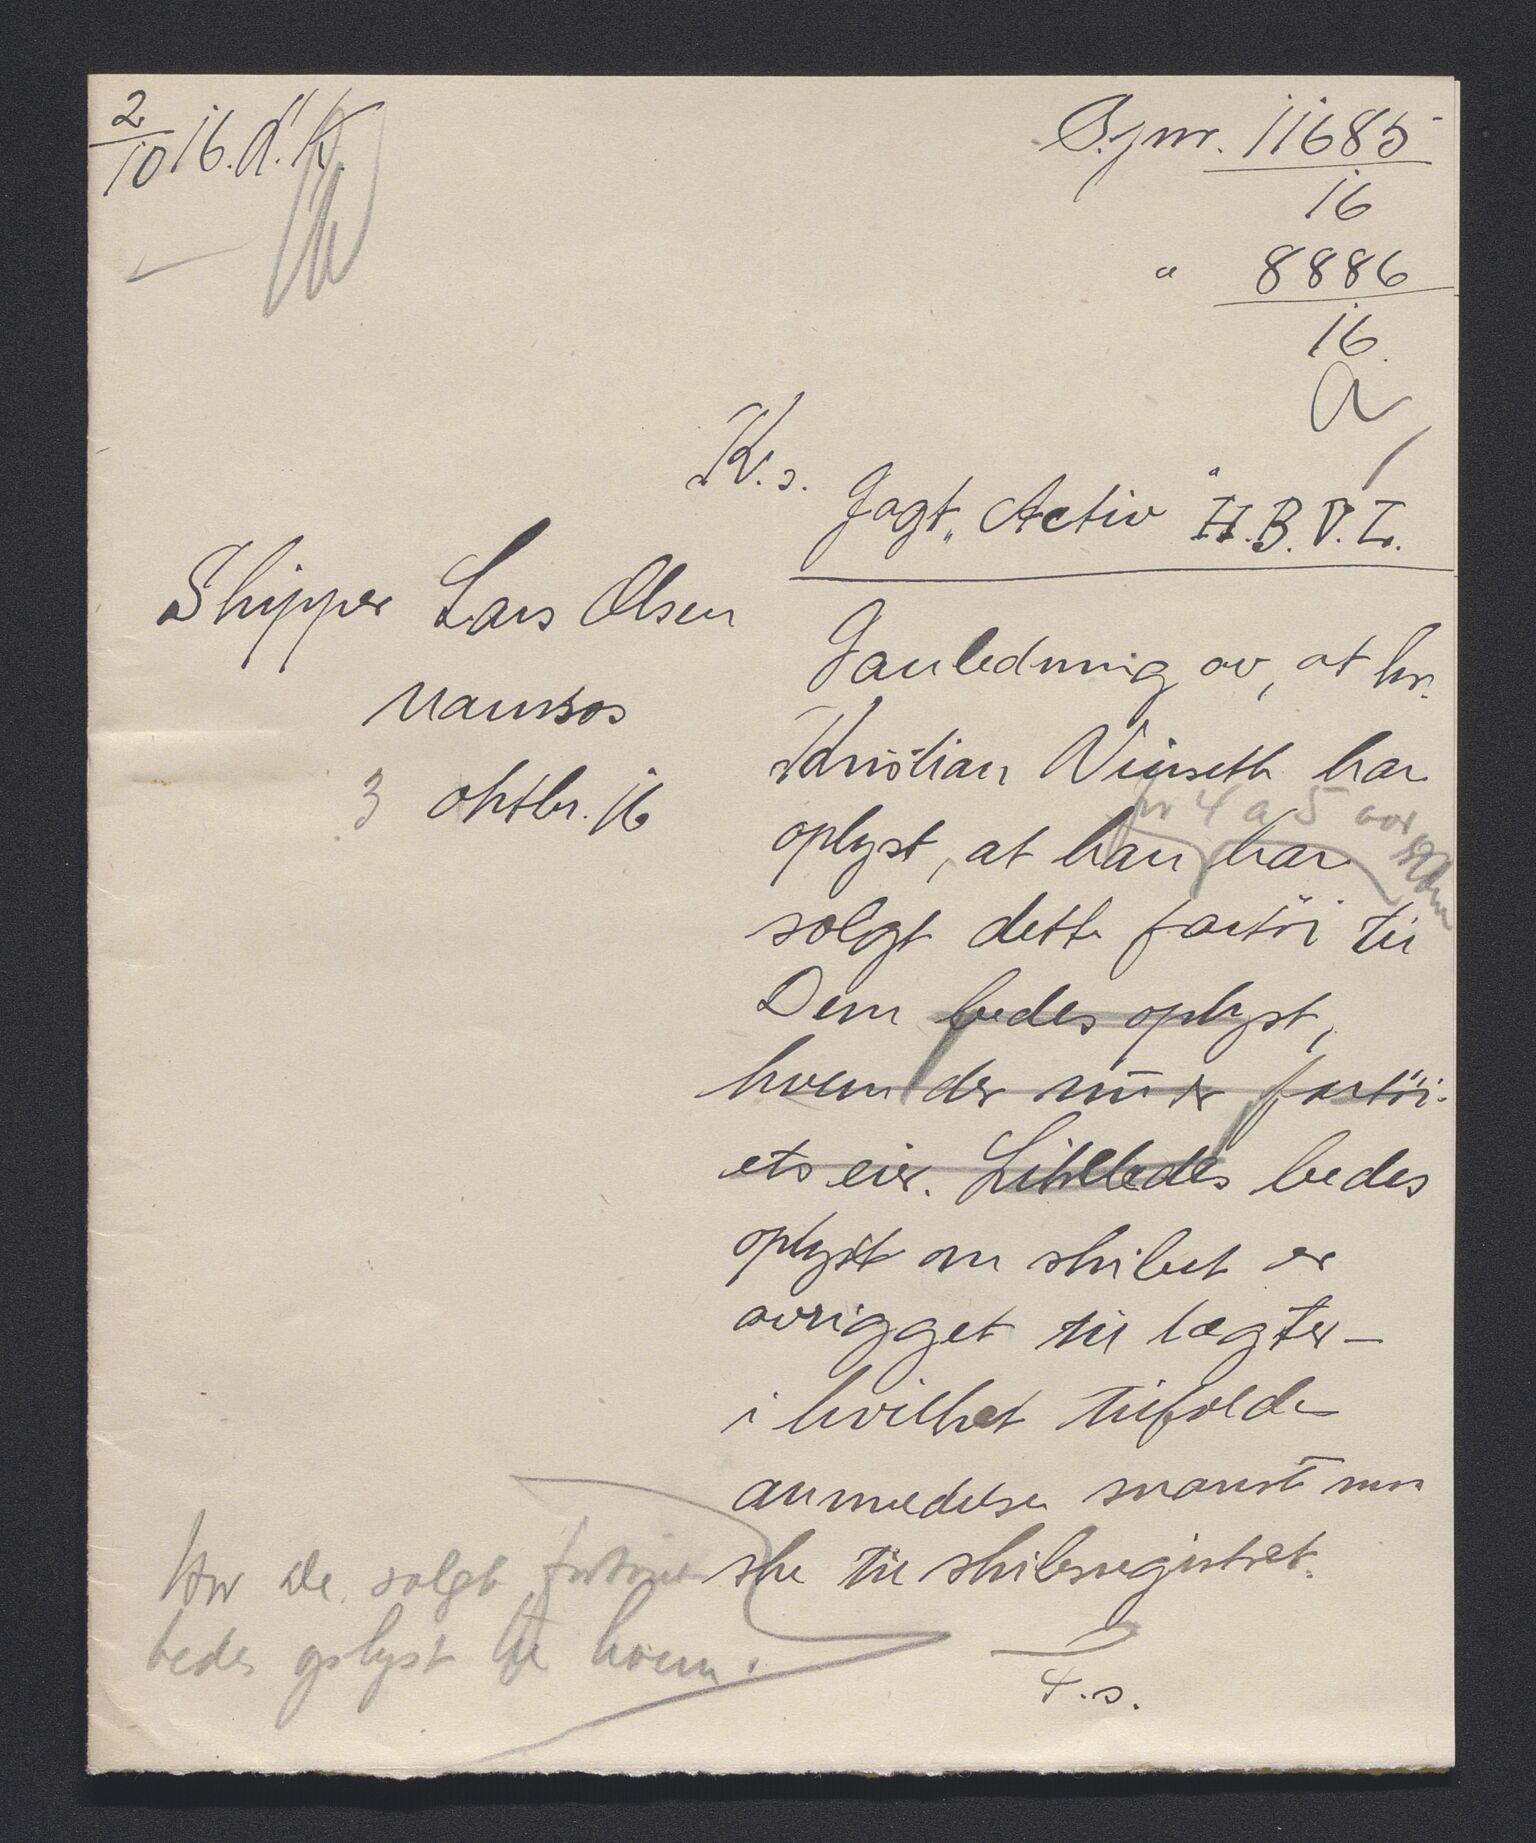 2/10 16.
B.jnr. 11685
16
" 8886
16
K.s.
Jagt "Activ" H.B.V.L.
Skipper Lars Olsen
Namsos
3 oktbr. 16
I anledning av, at hr.
Kristian Vinseth har
for 4 a 5 aar siden
oplyst, at han har
solgt dette fartöi til
Dem bedes oplyst,
hvem der nu er fartöi-
ets eier. Likeledes bedes
oplyst om skibet er
avrigget til lægter -
i hvilket tilfælde
anmeldelse snarest maa
ske til skibsregistret.
Har De solgt fartöiet
bedes oplyst til hvem.
F.s.